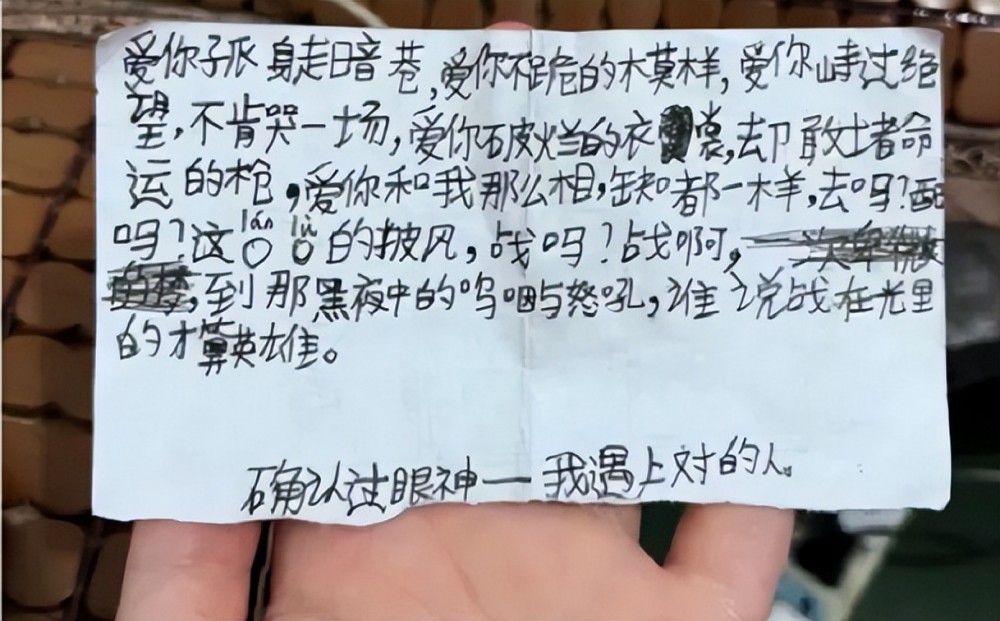 爱你孤身走暗巷,爱你不跪的模样,爱你峙过绝
望,不肯哭一场,爱你破烂的衣裳,却敢堵命
运的枪,爱你和我那么相,缺都一样,去吗?配
吗?这lán lǚ〇〇的披风,战吗?战啊,
到那黑夜中的呜咽与怒吼,谁说战在光里
的才算英雄。
确认过眼神一我遇上对的人。